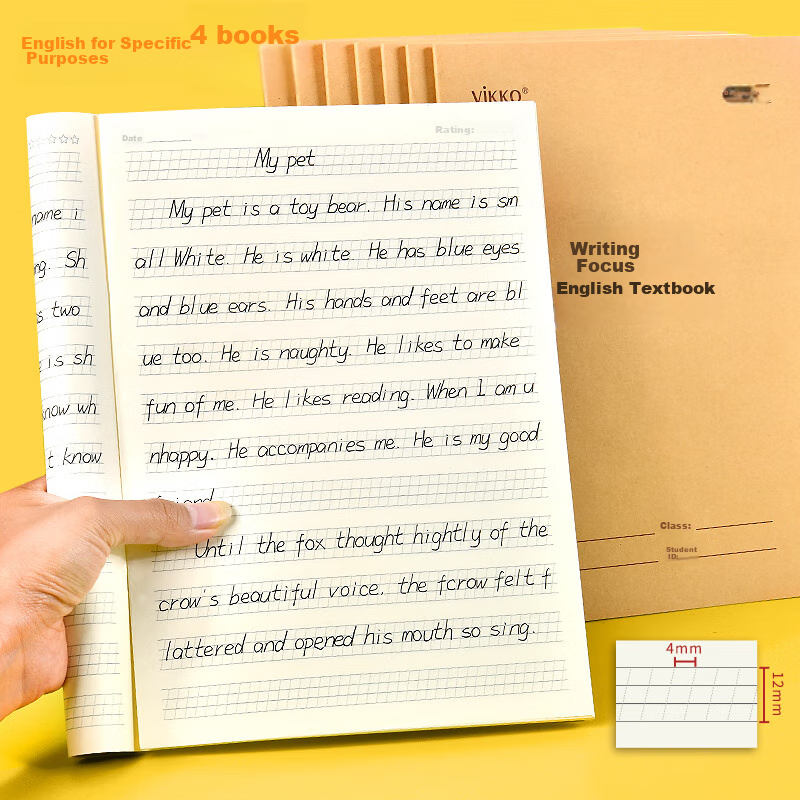 English for Specific 4 books
Purposes
ViKKO®
Date
Rating:
My pet
My pet is a toy bear. His name is sm
all White. He is white. He has blue eyes
and blue ears. His hands and feet are bl
ue too. He is naughty. He likes to make
fun of me. He likes reading. When I am u
nhappy. He accompanies me. He is my good
friend
Until the fox thought hightly of the
crow's beautiful voice, the fcrow felt f
lattered and opened his mouth so sing.
name i
ng. Sh
s two
is sh
know wh
t know
Writing
Focus
English Textbook
Class:
Student
ID:
4mm
12mm